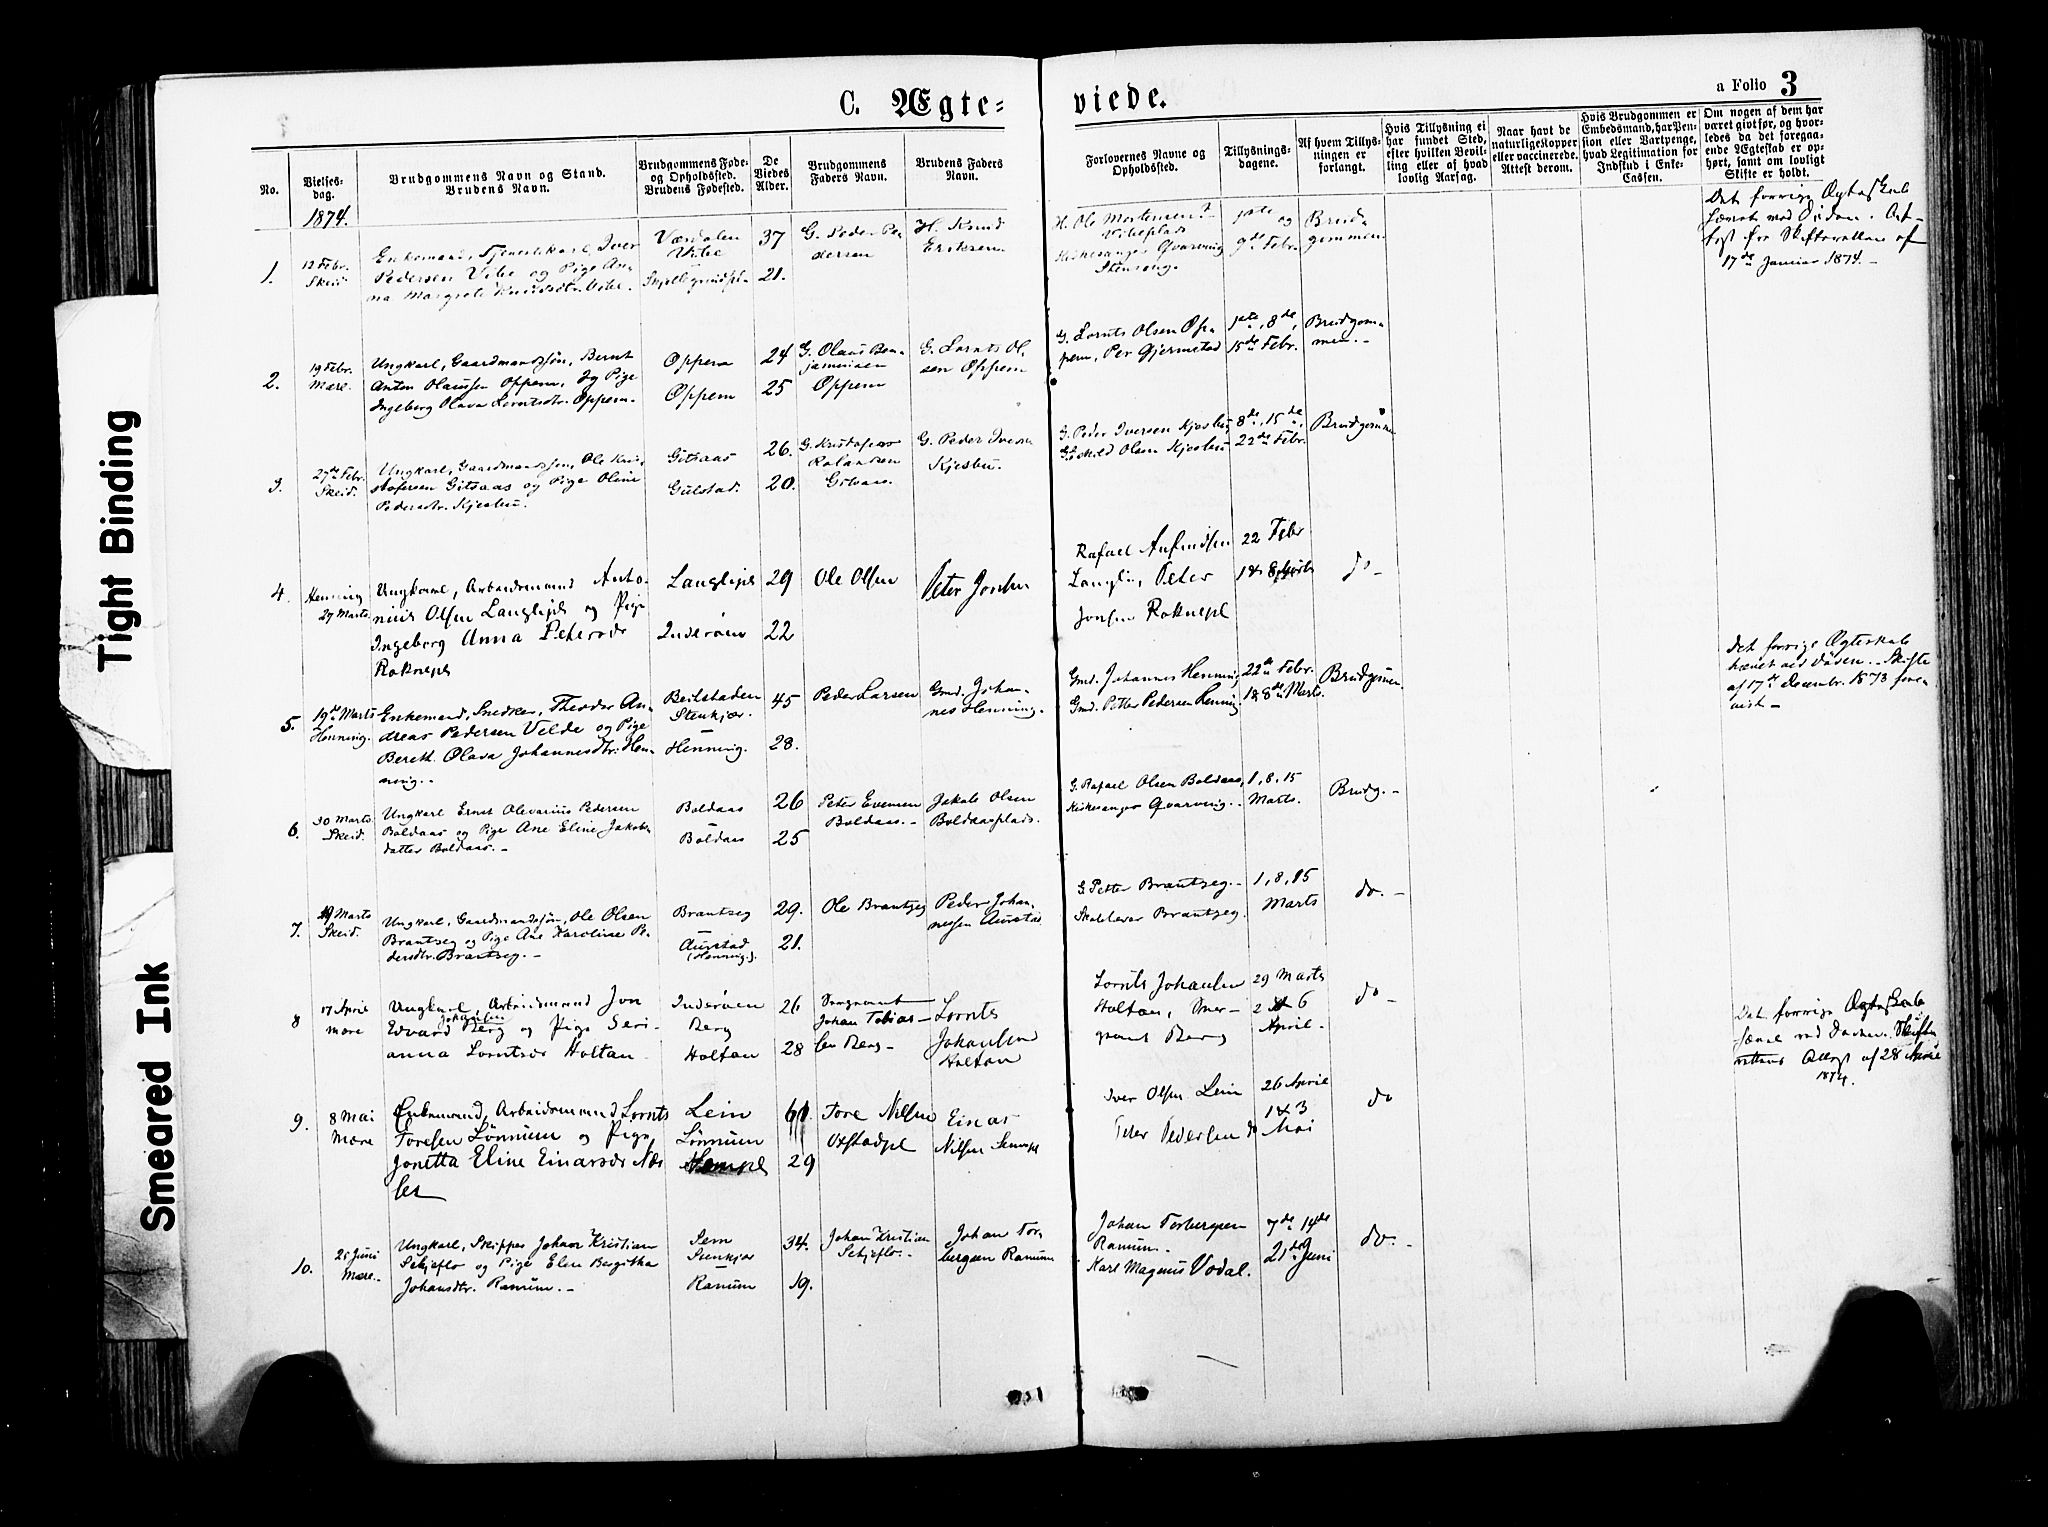 C. Ægte=
viede.
a Folio 3
No.
Vielses-
dag.
Brudgommens Navn og Stand.
Brudens Navn.
Brudgommens Føde-
og Opholdssted.
Brudens Fødested.
De
Viedes
Alder.
Brudgommens
Faders Navn.
Brudens Faders
Navn.
Forlovernes Navne og
Opholdssted.
Tillysnings-
dagene.
Af hvem Tillys-
ningen er
forlangt.
Hvis Tillysning ei
har fundet Sted,
efter hvilken Bevil-
ling eller af hvad
lovlig Aarsag.
Naar havt de
naturlige Kopper
eller vaccinerede.
Attest derom.
Hvis Brudgommen er
Embedsmand, har Pen-
sion eller Vartpenge,
hvad Legitimation for
Indskud i Enke-
Cassen.
Om nogen af dem har
været gift før, og hvor-
ledes da det foregaa-
ende Ægteskab er op-
hørt, samt om lovligt
Skifte er holdt.
1874.
1.
12 Febr.
Skeid.
Enkemand, Tjenestekarl, Iver
Pedersen Vibe og Pige An-
na Margrete Knudsdtr. Vibe.
Værdalen
Vibe
37
21.
G. Peder Pe-
dersen
H. Knud
Eriksen
H. Ole Mortensen
Vibeplads
Kirkesanger Qvarving
1ste og
9de Febr.
Brud-
gommen
Det forrige Ægteskab
hævet ved Døden. At-
test fra Skifteretten af
17de Januar 1874. -
2.
19 Febr.
Mære.
Ungkarl, Gaardmandssøn, Bernt
Anton Olaussen Oppem, og Pige
Ingeborg Olava Lorntsdtr. Oppem.
Oppem
Oppem
24
25
G. Olaus Ben-
jaminsen
Oppem
G. Lornts Ol-
sen Oppem
G. Lornts Olsen Op-
pem, Per Gjermstad
1ste, 8de,
15de Febr.
Brudgom-
men. -
3.
27de Febr.
Skeid.
Ungkarl, Gaardmandssøn, Ole Kri-
stofersen Gitsaas og Pige Oline
Pedersdtr. Kjesbu.
Gitsaas
Gulstad.
26.
20.
G. Kristofer
Rolandsen
Gitsaas.
G. Peder Iversen
Kjesbu.
G. Peder Iversen Kjesbu,
G. Eskild Olsen Kjesbu
8de, 15de,
22de Febr.
Brudgommen
4.
Henning
27 Marts
Ungkarl, Arbeidsmand Anto-
nius Olsen Langlipl og Pige
Ingeborg Anna Petersdr
Roknepl
Langlipl
Inderøen
29
22
Ole Olsen
Peter Jonsen
Rafael Anfindsen
Langli, Peter
Jonsen Roknepl
22 Febr
1 & 8 Marts
do -
5.
19de Marts
Henning.
Enkemand, Snedker, Theodor An-
dreas Pedersen Velde og Pige
Bereth Olava Johannesdtr. Hen-
ning. -
Beilstaden
Stenkjær
Henning.
45
28.
Peder Larsen
Gmd. Johan-
nes Henning.
Gmd. Johannes Henning,
Gmd. Petter Pedersen Henning
22de Febr.
1 & 8de Marts.
Brudgommen.
Det forrige Ægteskab
hævet ved Døden. - Skifte
af 17de Decembr. 1873 fore-
vist -
6.
30 Marts
Skeid.
Ungkarl Ernst Olevarius Pedersen
Boldaas og Pige Ane Eline Jakobs-
datter Boldaas. -
Boldaas
Boldaas
26
25
Peter Evensen
Boldaas. -
Jakob Olsen
Boldaasplads.
G. Rafael Olsen Boldaas,
Kirkesanger Qvarving. -
1, 8, 15
Marts.
Brudg. -
7.
Marts
Skeid.
Ungkarl, Gaardmandssøn, Ole Olsen
Brantseg og Pige Ane Karoline Pe-
dersdtr. Brantseg. -
Brantseg
Aurstad
(Henning.).
29.
21.
Ole Brantseg
Peder Johan-
nesen Aurstad
G. Petter Brantseg. -
Brantseg.
1, 8, 15
Marts
do. -
8
17 April
Mære
Ungkarl, Arbeidsmand Jon
Edvard Johansen Berg og Pige Seri-
anna Lorntsdr Holtan -
Inderøen
Berg
Holtan
26
28
Johan Tobias-
sen Berg -
Lornts
Johansen
Holtan
Lornts Johansen
Holtan,
Berg
29 Marts
2 & 6
April -
do -
9.
8 Mai
Mære
Enkemand, Arbeidsmand Lornts
Toresen Lønnum og Pige
Jonetta Eline Einarsdr Næs
Lein
Lønnum
29
Tore Nilsen
Oxstadpl
Einar
Nilsen
Iver Olsen Lein
Peter Pedersen do
26 April
1 & 3
Mai
do
Det forrige Ægteskab
hævet ved Døden. Skifte-
rettens Attest af 28 April
1874.
10.
21 Juni
Mære. -
Ungkarl, Skipper Johan Kristian
Seljeflo og Pige Elen Bergitha
Johansdtr. Ranum. -
Sem
Stenkjær
Ranum
34.
19.
Johan Kristian
Seljeflo. -
Johan Tor-
bergsen Ranum
Johan Torbergsen
Ranum. -
Karl Magnus Vodal.
7de 14de
21de Juni
do. -
Tight Binding
Smeared Ink